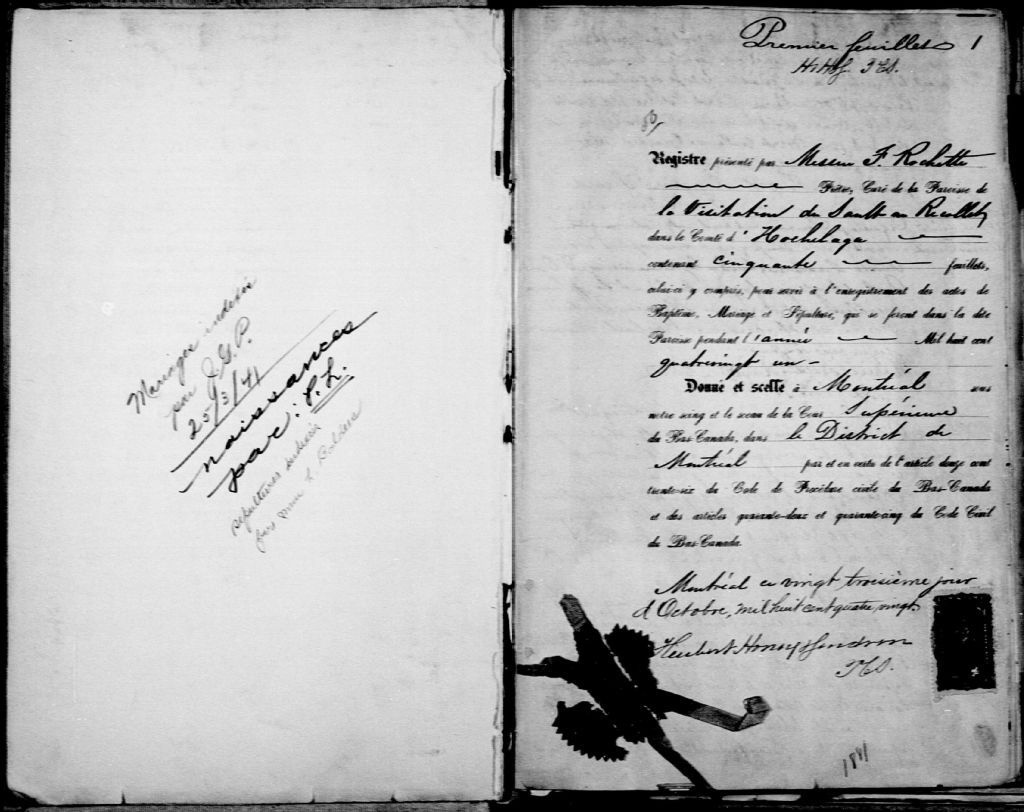 Mariages indexés
par J.G.P.
25/3/41
naissances
par: S.L.
sépultures
par
Premier feuillet 1
50/
Registre présenté par Messire F. Rochette
Prêtre, Curé de la Paroisse de
la Visitation du Sault au Recollet,
dans le Comté d'Hochelaga
contenant cinquante feuillets,
celui-ci y compris, pour servir à l'enregistrement des actes de
Baptême, Mariage et Sépulture, qui se feront dans la dite
Paroisse pendant l'année Mil huit cent
quatrevingt un -
Donné et scellé à Montréal sous
notre seing et le sceau de la Cour Supérieure
du Bas-Canada, dans le District de
Montréal par et en vertu de l'article douze cent
trente-six du Code de Procédure civile du Bas-Canada
et des articles quarante-deux et quarante-cinq du Code Civil
du Bas-Canada.
Montréal ce vingt troisième jour
d'Octobre, mil huit cent quatre vingt.
1881